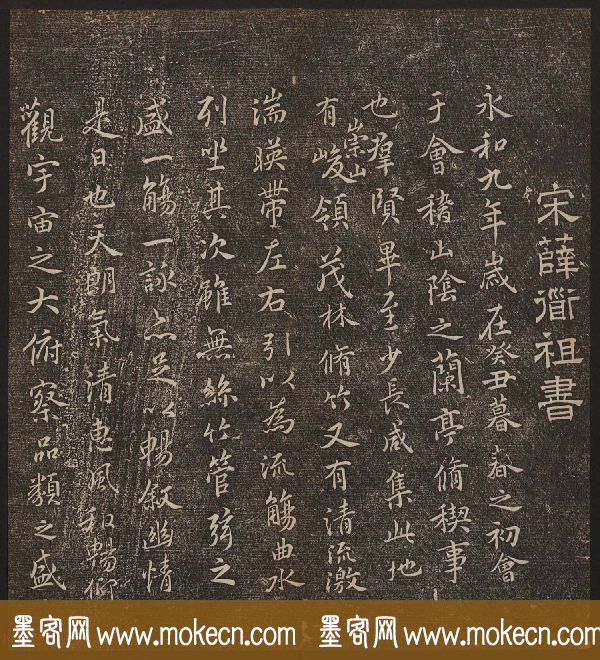 宋薛衜祖書
永和九年歲在癸丑暮春之初會
于會稽山陰之蘭亭脩稧事
也羣賢畢至少長咸集此地
有崇山峻領茂林脩竹又有清流激
湍暎帶左右引以為流觴曲水
列坐其次雖無絲竹管弦之
盛一觴一詠亦足以暢敘幽情
是日也天朗氣清惠風和暢仰
觀宇宙之大俯察品類之盛
墨客网 www.mokecn.com 墨客网 www.mokecn.com